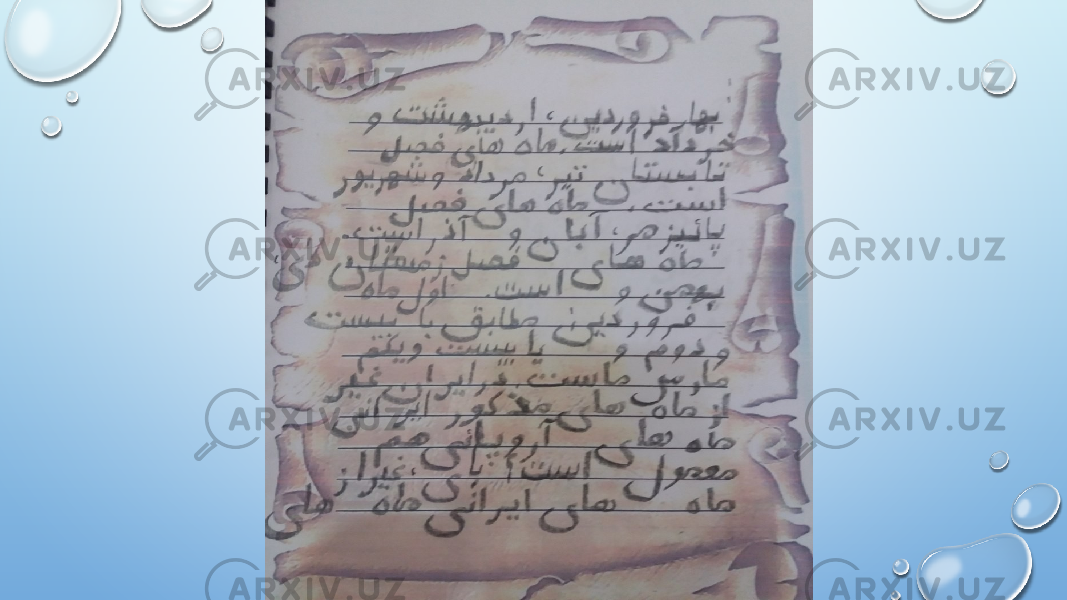 بهار فروردین، اردیبهشت و
خرداد است. ماه های فصل
تابستان تیر، مرداد و شهریور
است. ماه های فصل
پائیز مهر، آبان و آذر است.
ماه های فصل زمستان دی،
بهمن و است. اول ماه
فروردین مطابق با بیست
و دوم و یا بیست ویکم
مارس ماست. در ایران غیر
از ماه های مذکور ایرانی
ماه های آروپائی هم
معمول است. غیر از
ماه های ایرانی ماه های
ARXIV.UZ
ARXIV.UZ
ARXIV.UZ
ARXIV.UZ
ARXIV.UZ
ARXIV.UZ
ARXIV.UZ
ARXIV.UZ